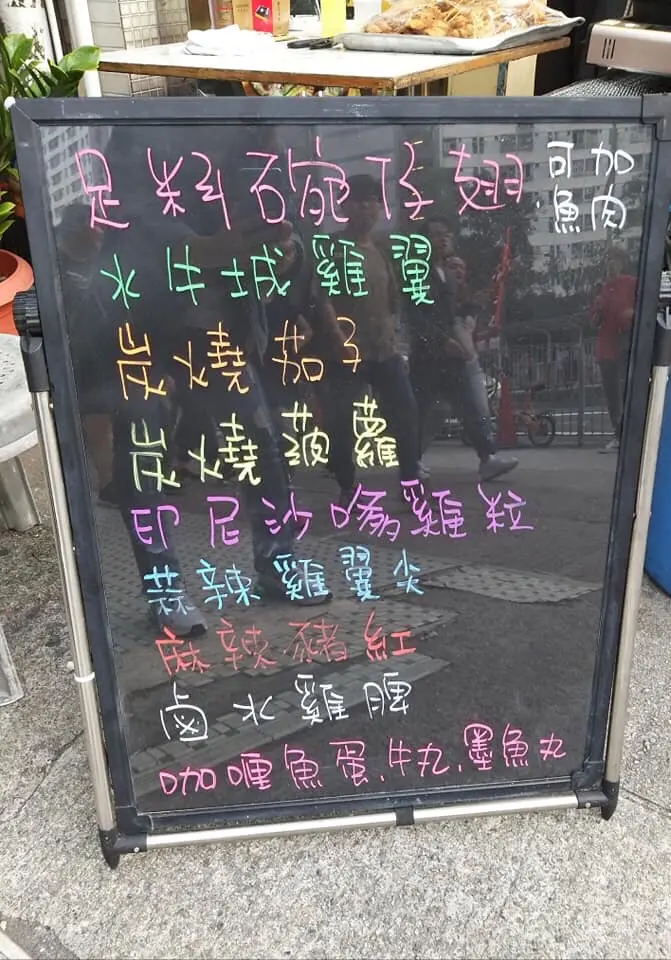 足料碗仔翅 可加魚肉
水牛城雞翼
炭燒茄子
炭燒菠蘿
印尼沙嗲雞粒
蒜辣雞翼尖
麻辣豬紅
鹵水雞脾
咖喱魚蛋.牛丸.墨魚丸